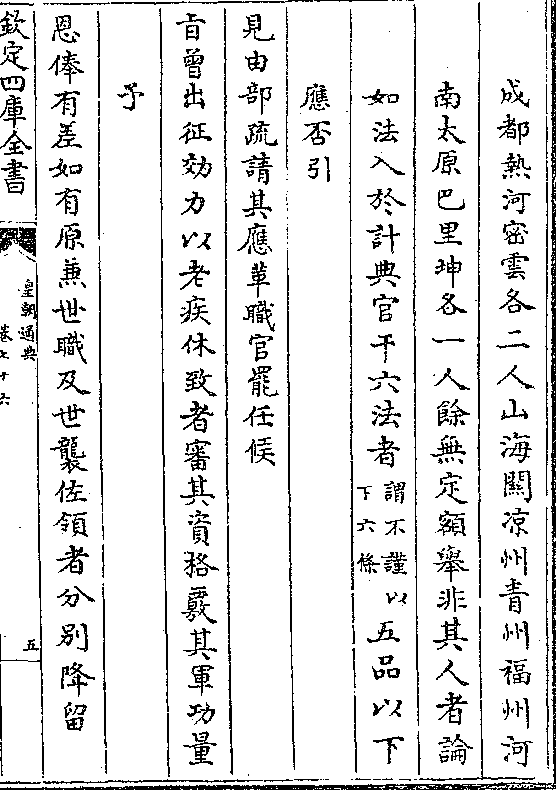 成都熱河密雲各二人山海關凉州青州福州河
南太原巴里坤各一人餘無定額舉非其人者論
如法入於計典官干六法者謂不謹以下六條以五品以下
應否引
見由部疏請其應革職官罷任候
旨曾出征効力以老疾休致者審其資格覈其軍功量
予
恩俸有差如有原兼世職及世襲佐領者分别降留
欽定四庫全書
皇朝通典
卷七十六
五